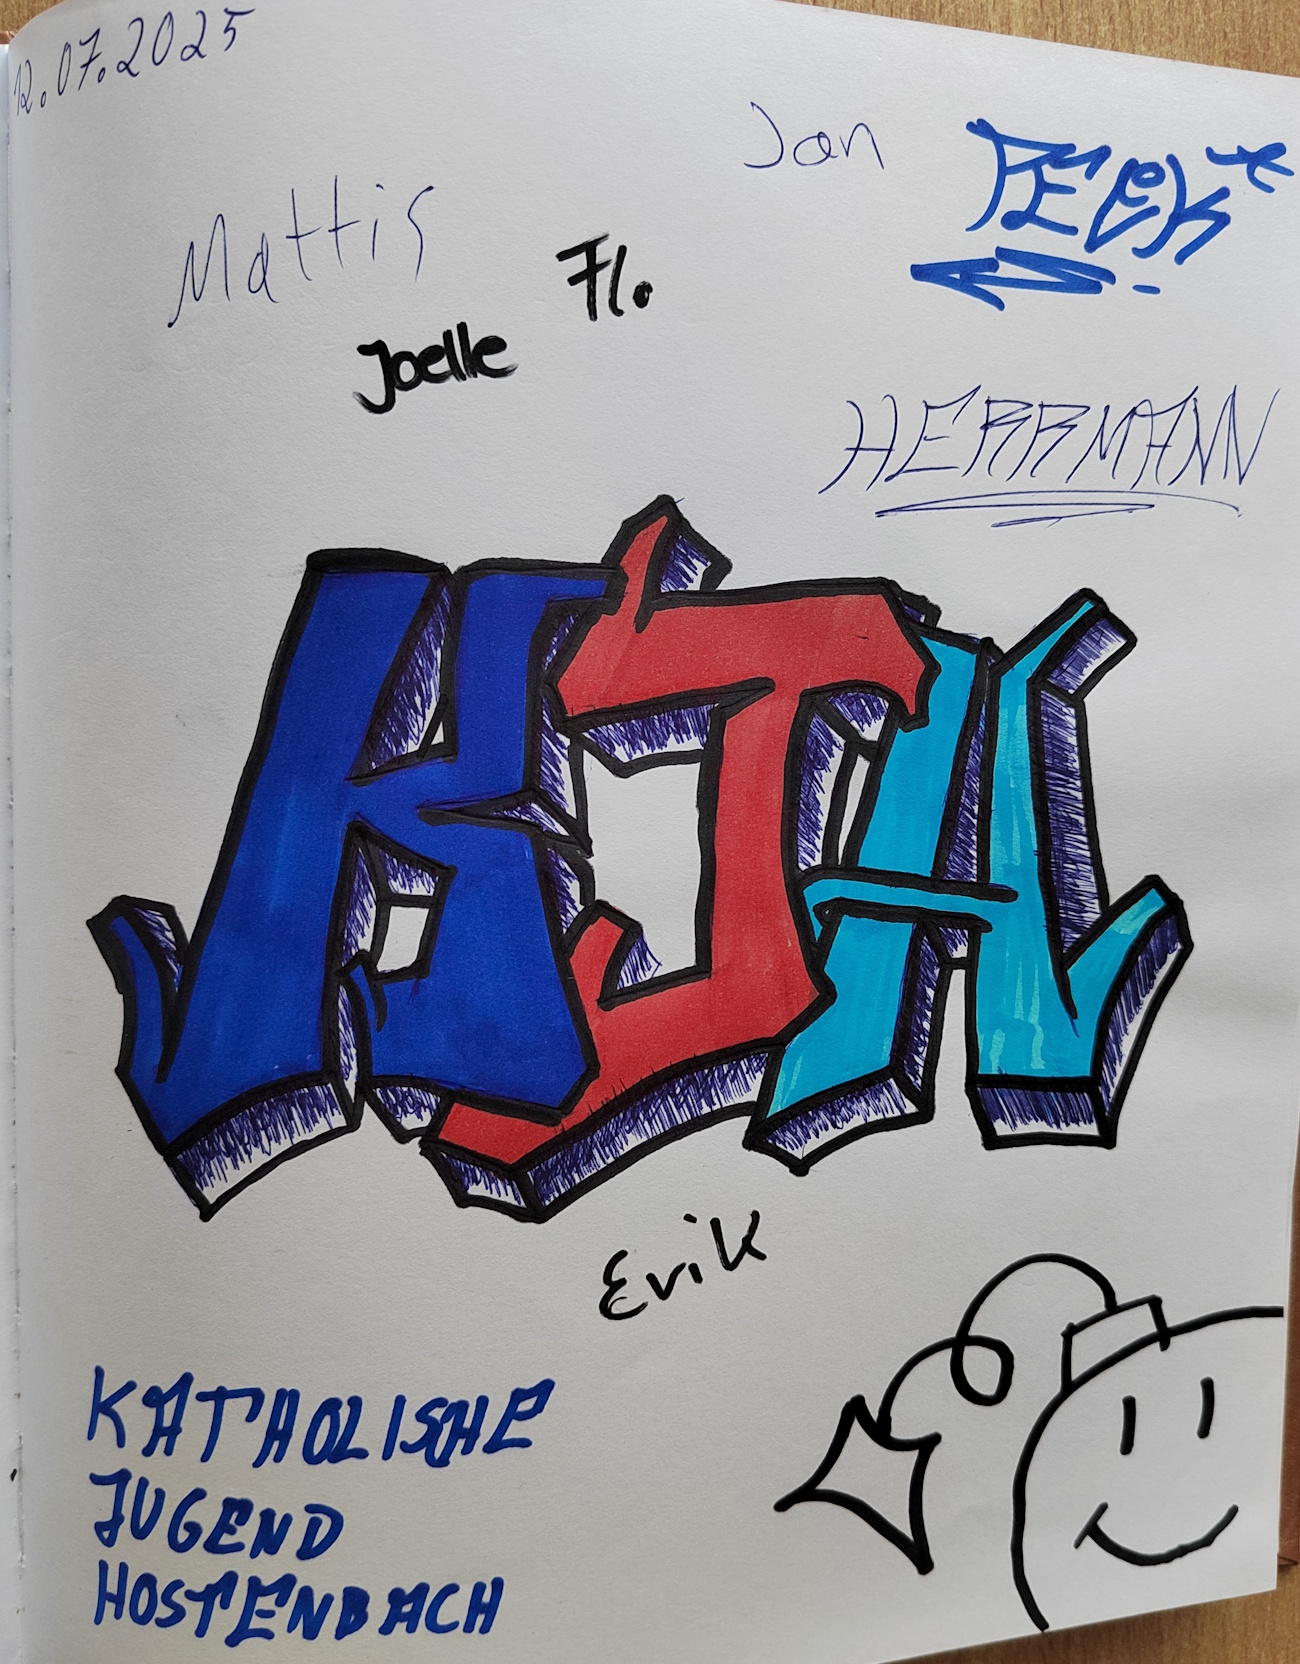 12.07.2025
Jan
PEEK
Mattis
Flo
Joelle
HERRMANN
KJH
Erik
KATHOLISCHE
JUGEND
HOSTENBACH